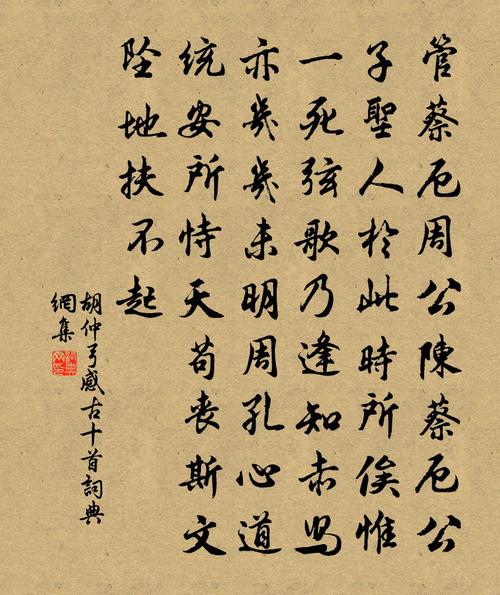 管蔡厄周公陳蔡厄公
子聖人於此時所俟惟
一死弦歌乃逢知赤舄
亦幾幾未明周孔心道
統安所恃天苟喪斯文
坠地扶不起
胡仲弓感古十首詞典
網集